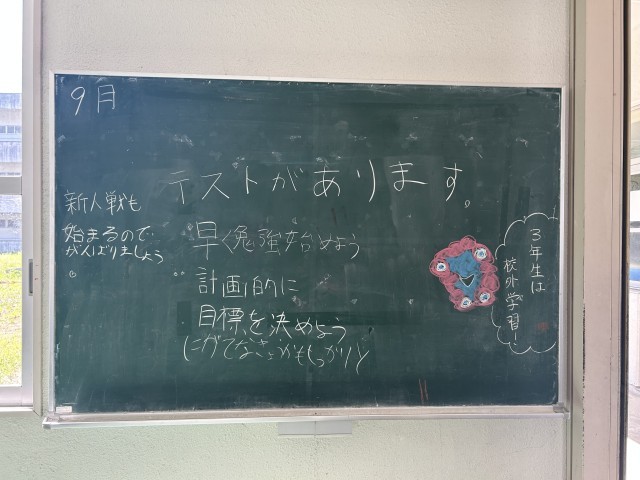 9月
テストがあります。
新人戦も
始まるので
がんばりましょう
早く勉強始めよう
計画的に
目標を決めよう
にがてなきょうかもしっかり
3年生は
校外学習!